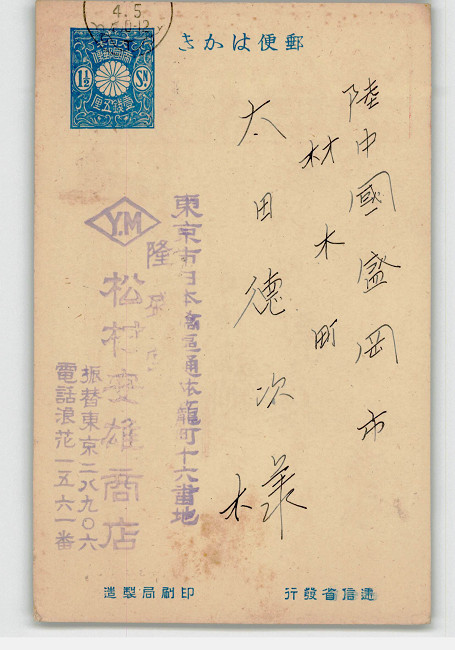 郵便はかき
4.5
大日本
帝國郵便
1½ Sn.
壹錢五厘
陸中國盛岡市
材木町
太田德次様
東京市日本橋區通油町十六番地
Y.M
隆
松村安雄商店
振替東京二八九〇六
電話浪花一五六一番
遞信省發行
印刷局製造